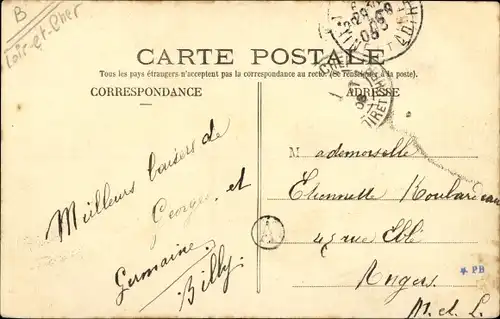 B
Loir-et-Cher
CARTE POSTALE
Tous les pays étrangers n'acceptent pas la correspondance au recto. (Se renseigner à la poste).
CORRESPONDANCE
ADRESSE
Meilleurs baisers de
Georges et
Germaine.
Billy.
Mademoiselle
Etiennette
45 rue Eblé
Angers
M. et L.
A
* PB